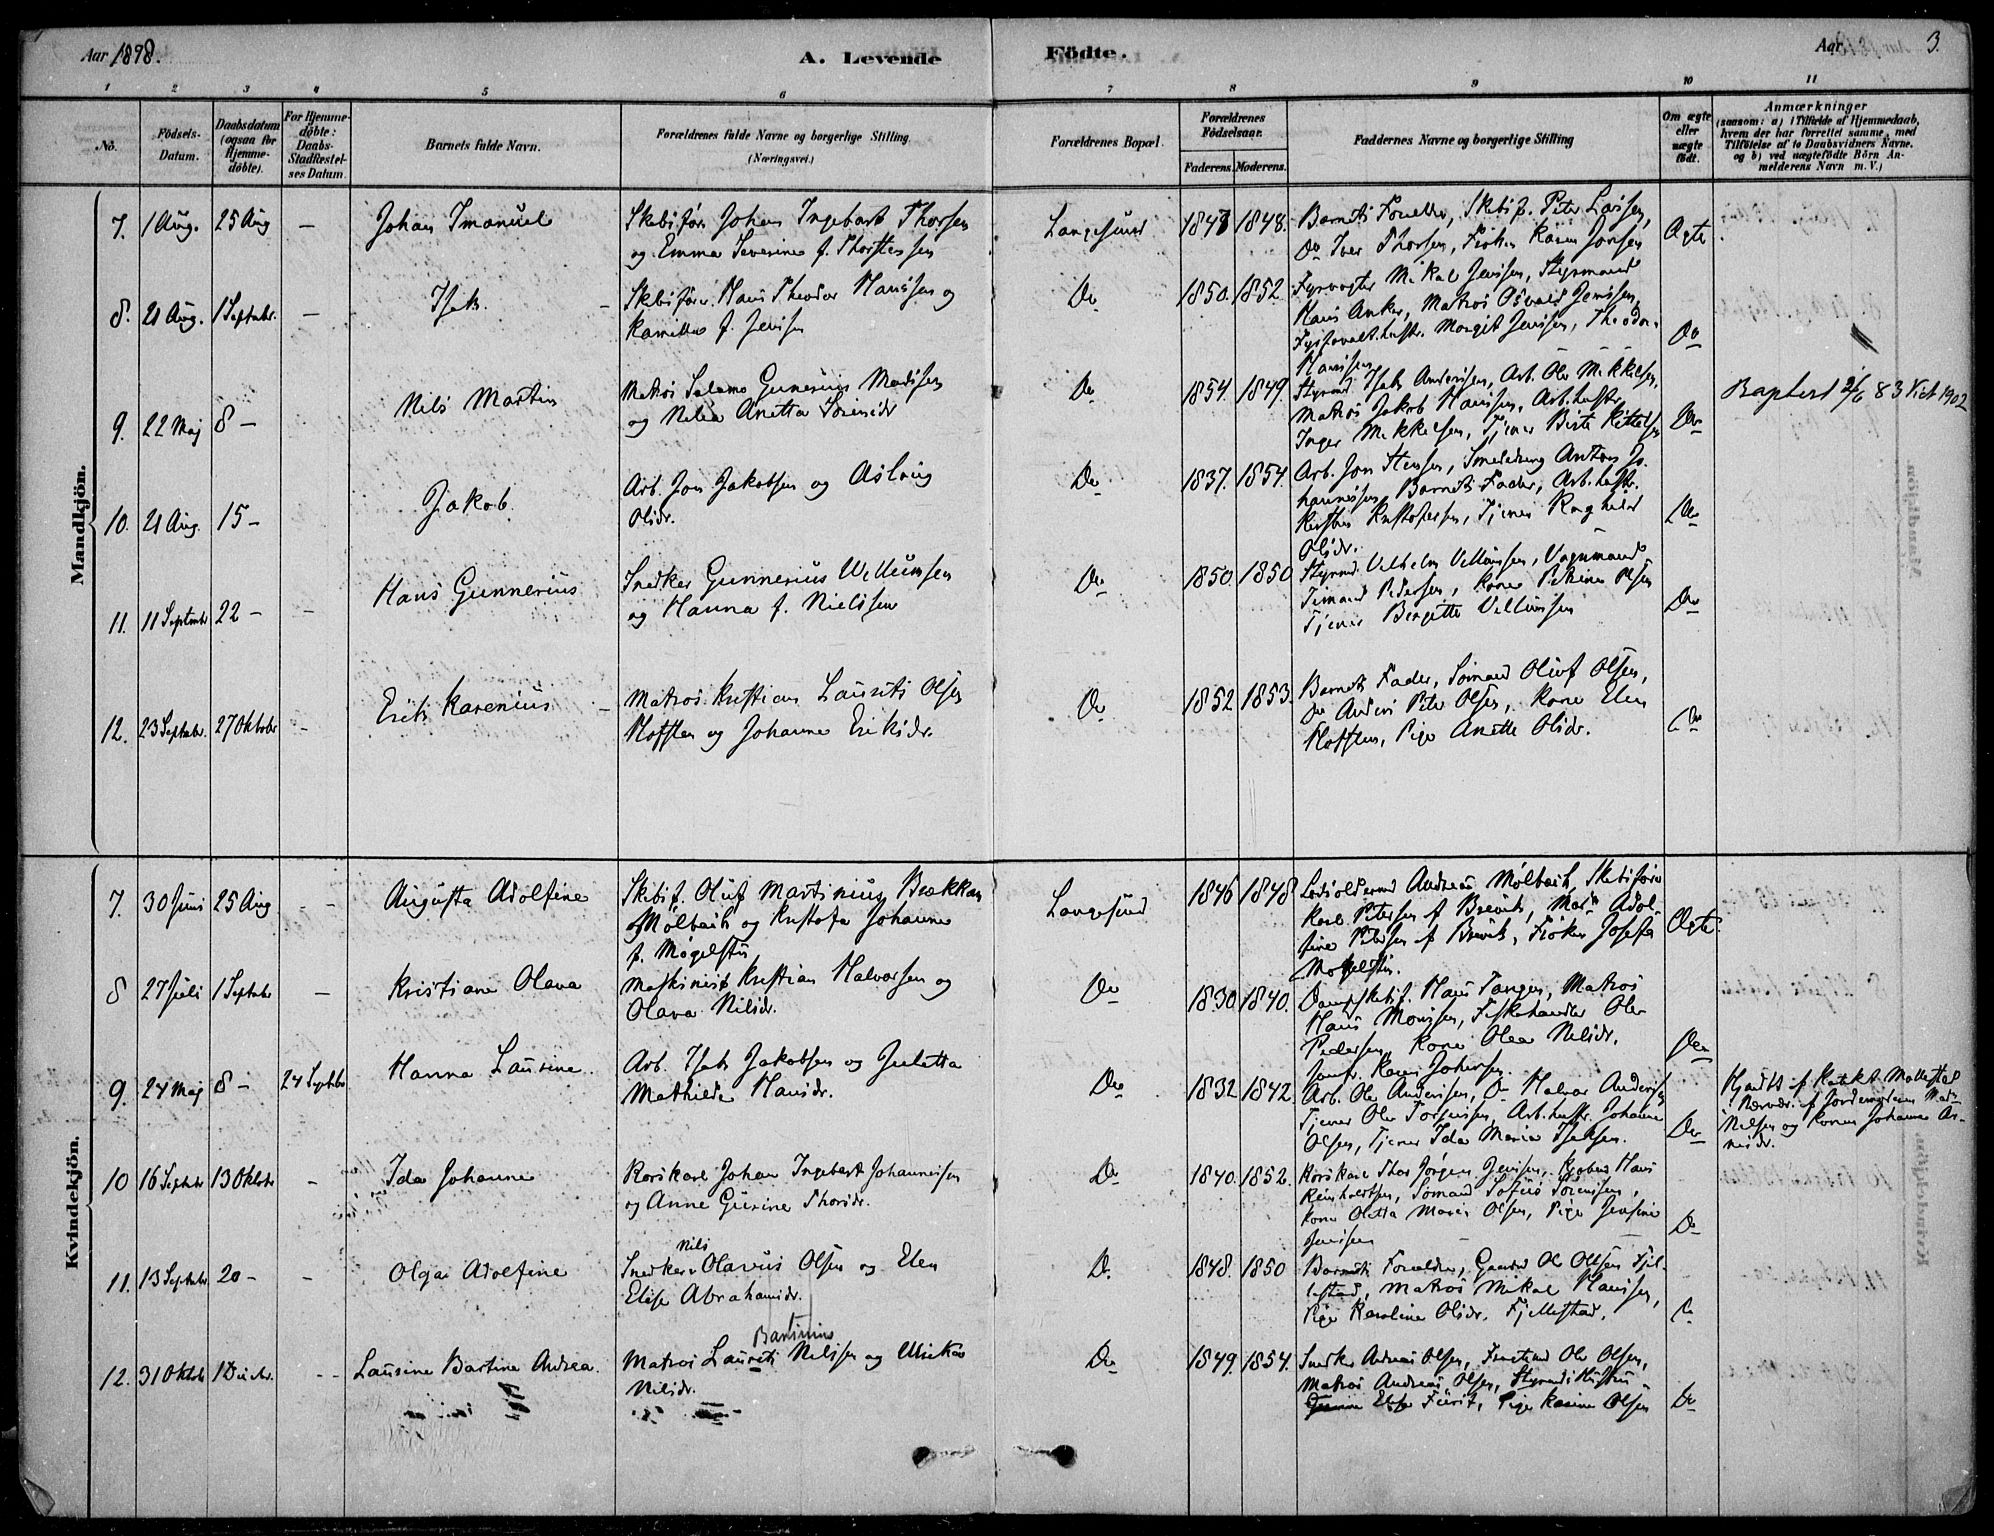 Aar 1878.
A. Levende
Födte.
Aar
3.
1 2 3 4 5 6 7 8 9 10 11
No.
Födsels-
Datum.
Daabsdatum
(ogsaa for
Hjemme-
döbte).
For Hjemme-
döbte:
Daabs-
Stadfæstel-
ses Datum.
Barnets fulde Navn.
Forældrenes fulde Navne og borgerlige Stilling
(Næringsvei.)
Forældrenes Bopæl.
Forældrenes
Födselsaar.
Faderens. Moderens.
Faddernes Navne og borgerlige Stilling
Om ægte
eller
uægte
födt.
Anmærkninger
(saasom: a) i Tilfælde af Hjemmedaab,
hvem der har forrettet samme, med
Tilföielse af to Daabsvidners Navne.
og b) ved uægtefödte Börn An-
melderens Navn m. V.)
Mandkjön.
7. 1 Aug. 25 Aug — Johan Imanuel
Skibsfører Johan Ingebart Thorsen
og Emma Severine f. Thorstensen
Langesund 1847 1848.
Barnets Forældre, Skibsf. Peter Larsen,
Do Iver Thorsen, Frøken Karen Jensen
Ægte
8. 21 Aug. 1 Septbr. — Isak
Skibsfører Hans Theodor Hansen og
Kamilla f. Jensen
Do 1850. 1852
Fyrvogter Mikal Jensen, Styrmand
Hans Anker, Matros Osvald Jensen,
Margit Jensen, Theodor
Hanssen
Do
9. 22 Maj 8 — Nils Martin
Matros Salamo Gunerius Madsen
og Nilia Anetta Sørensdr
Do 1854. 1849.
Styrmd. Isak Andersen, Arb. Ole Mikkelsen,
Matros Jakob Hansen, Arb. hustr.
Inger Mikkelsen, Tjener Birte Kittelsen
Do
Baptist 2/6 83 Vid 1902
10. 21 Aug. 15 — Jakob.
Arb. Jon Jakobsen og Aslaug
Olsdr.
Do 1837. 1854.
Arb. Jon Stensen, Smedsvend Anton Jo-
hannesen, Barnets Fader, Arb. hustr.
Kirsten Kristofersen, Tjener Ragnhild
Olsdr.
Do
11. 11 Septembr 22 — — Hans Gunnerius
Snedker Gunnerius Vellumsen
og Hanna f. Nielssen
Do 1850. 1850
Styrmd. Vilhelm Vellumsen, Vognmand
Simand Pedersen, Kone Petrine Olsen
Tjener Bergitte Vellumsen
Do
12. 23 Septebr. 27 Oktober — Erik Karenius
Matros Kristian Laurits Olsen
Hofsten og Johanne Eriksdr.
Do 1852 1853.
Barnets Fader, Sømand Oluf Olsen,
Do Anders Peter Olsen, Kone Elen
Hofsten, Pige Anette Olsdr.
Do
Kvindekjön.
7. 30 Juni 25 Aug — — Augusta Adolfine
Skibsf. Oluf Martinius Brekkan
Mølbach og Kristofa Johanne
f. Møgelstu
Langesund 1846 1848
Lodsoldermd Andreas Mølbach, Skibsfører
Karl Petersen af Brevik, Mad. Adol-
fine Petersen af Brevik, Frøken Josefa
Møgelstu.
Ægte.
8 27 Juli 1 Septebr — Kristiane Olava
Maskinist Kristian Halvorsen og
Olava Nilsdr.
Do 1830 1840.
Dampskibsf. Hans Tangen, Matros
Hans Monsen, Fiskehandler Ole
Pedersen, Kone Olea Nilsdr.
Do
9. 24 Maj 8 — 24 Septebr. Hanna Laurine.
Arb. Isak Jakobsen og Juletta
Mathilde Hansdr.
Do 1832 1842.
Arb. Ole Andersen, Do Halvor Andersen
Tjener Ole Torgersen, Arb. hustr. Johanne
Olsen, Tjener Ida Marie Isaksen.
Do
Hjdbt. af Kateket Mollestad
i Nærvær. af Jordemoderen Mad.
Nilsen og Konen Johanne
10 16 Septebr 13 Oktobr — Ida Johanne
Korskarl Johan Ingebert Johannesen
og Anne Gurine Thorsdr.
Do 1840. 1852.
Korskarl Thor Jørgen Jensen, Hans
Reinholdtsen, Sømand Sofus Sørensen,
Kone Oletta Marie Olsen, Pige Josefine
Jensen
Do
11. 13 Septebr. 20 — — Olga Adolfine
Nils
Snedker Olavus Olsen og Elen
Elise Abrahamsdr.
D. 1848. 1850
Barnets Forældre, Gaardbr Ole Olsen Fjel-
lestad, Matros Mikal Hanssen,
Pige Karoline Olsdr. Fjellestad.
D.
12. 31 Oktobr 1 Decbr. — — Laurine Bartine Andrea.
Bartinius
Matros Laurits Nilssen og Ulrika
Nilsdr.
Do 1849. 1854.
Snedker Andreas Olsen, Ole Olsen,
Matros Andreas Olsen, Styrmds Hustru
Else Furst, Pige Karine Olsen
Do